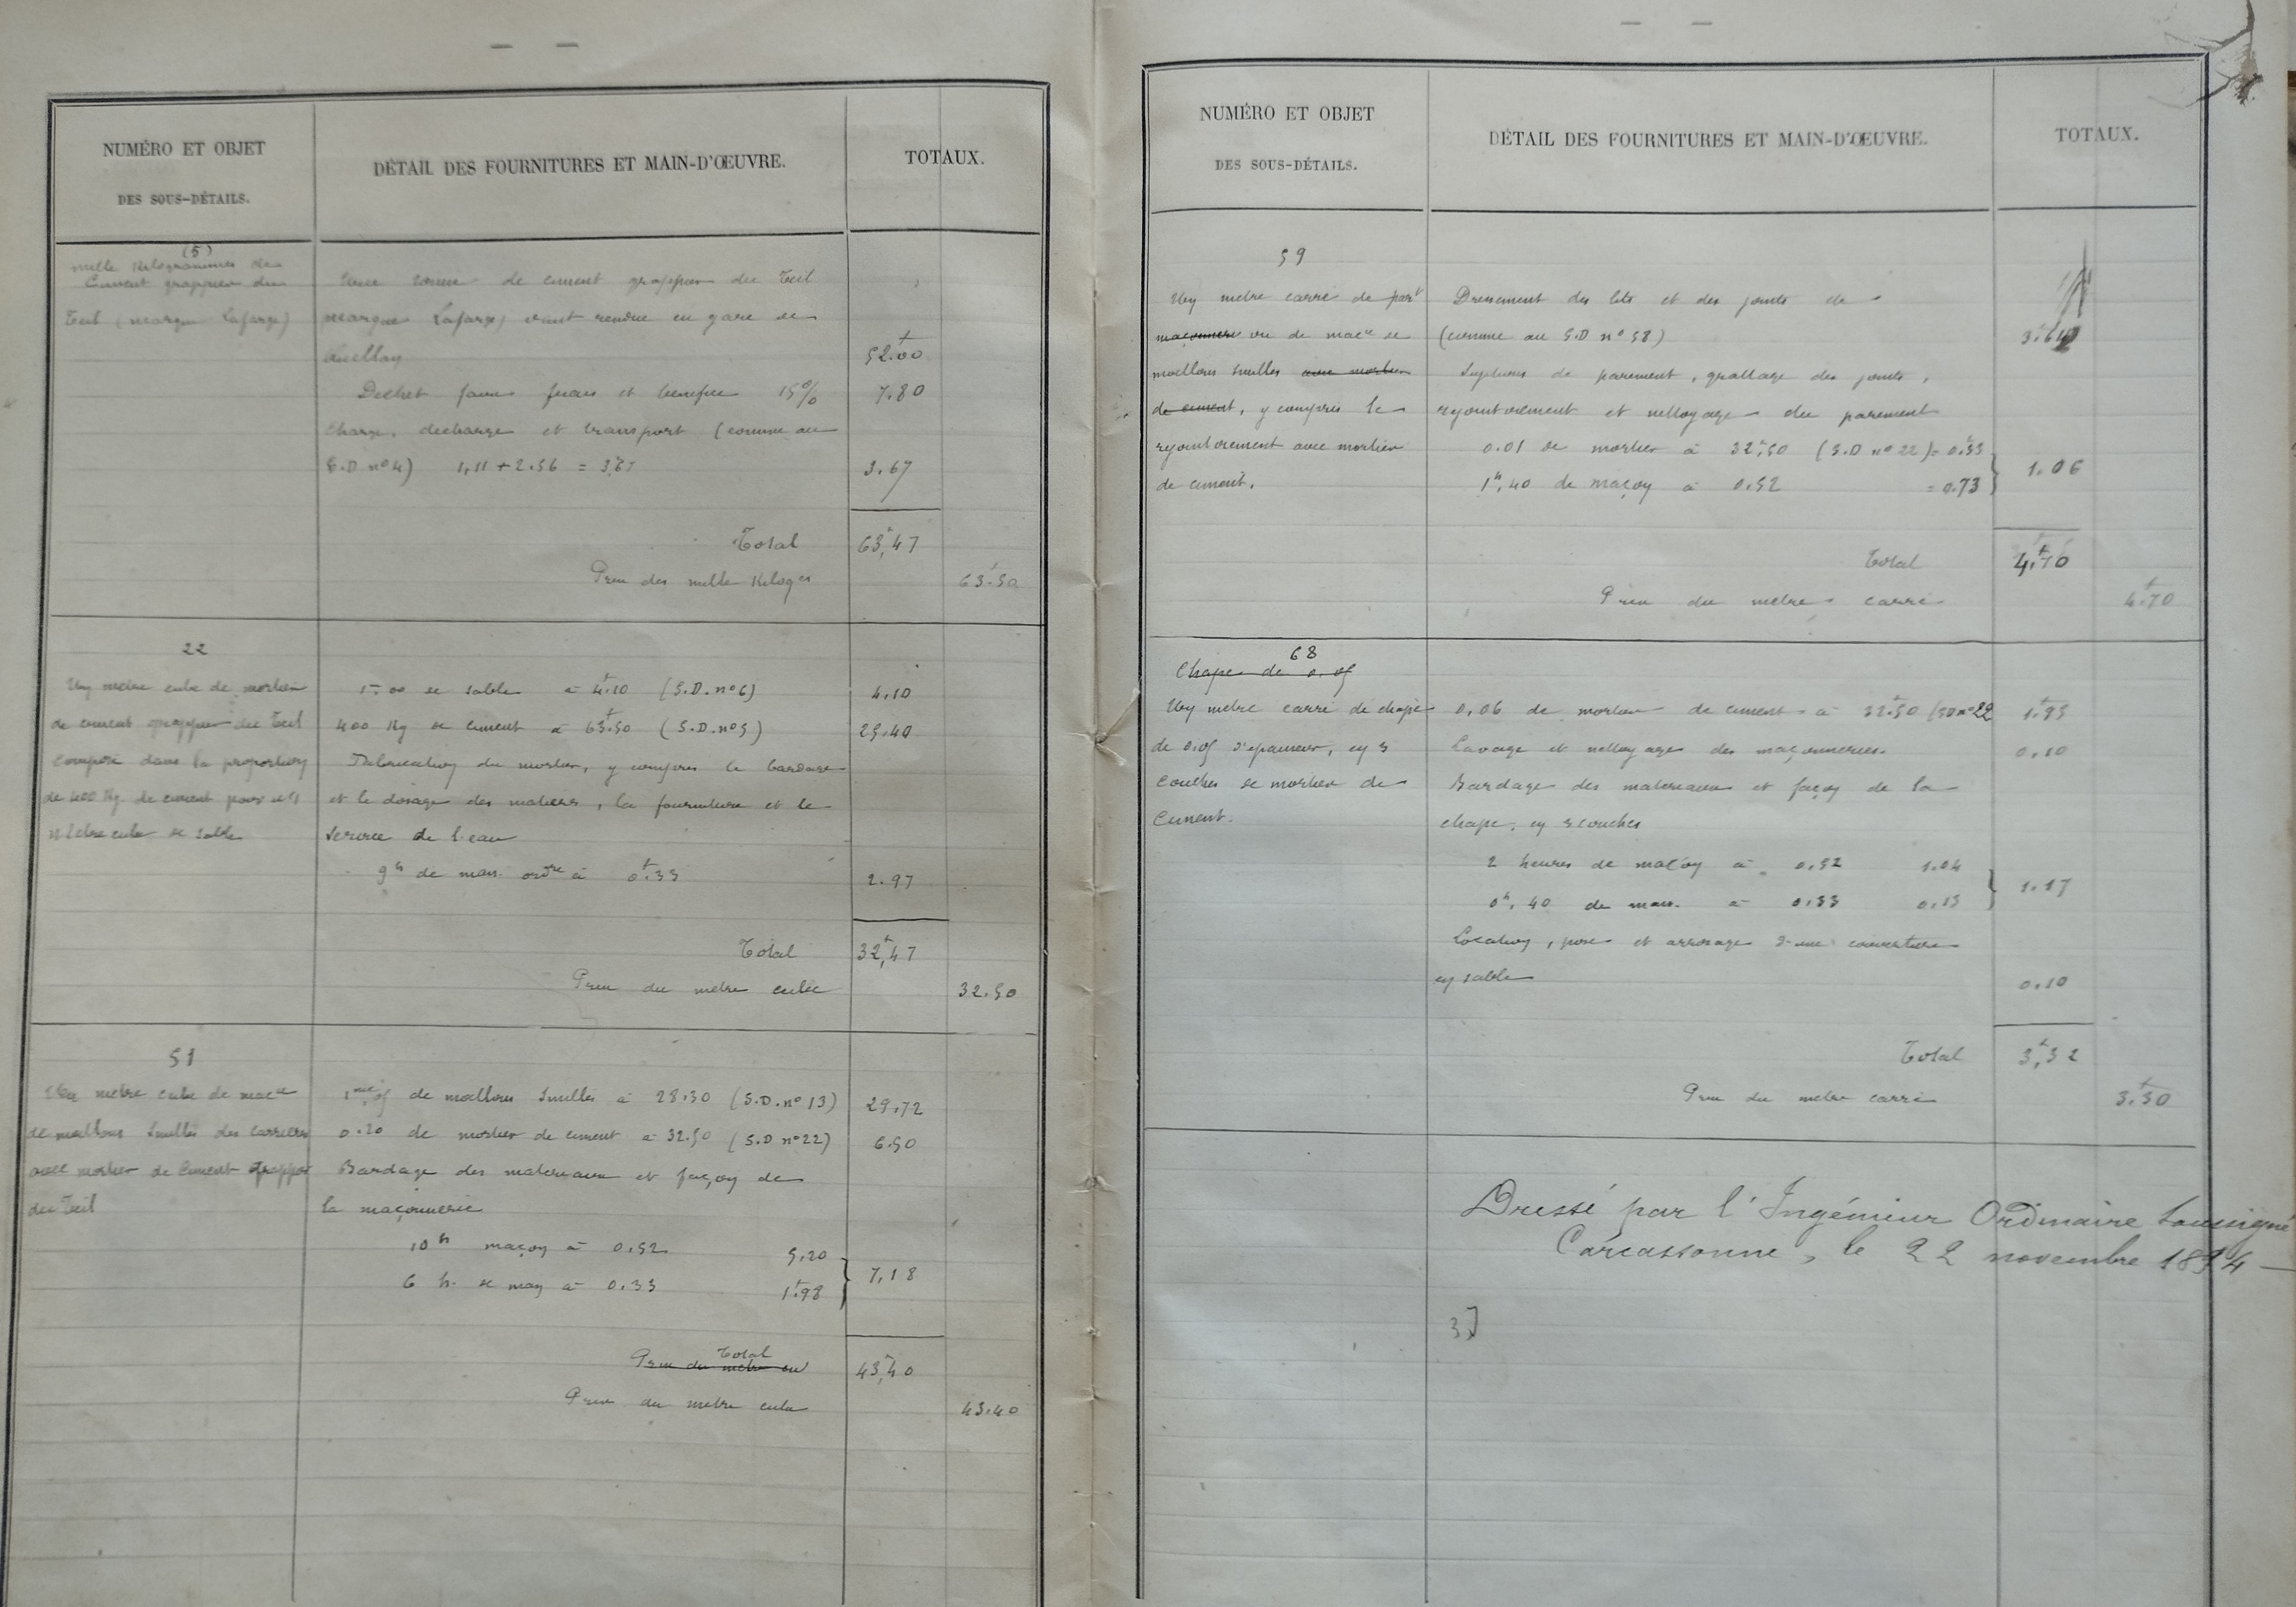 NUMÉRO ET OBJET
DES SOUS-DÉTAILS.
DÉTAIL DES FOURNITURES ET MAIN-D'ŒUVRE.
TOTAUX.
(5)
mille Kilogrammes de
Ciment grappier du
Teil (marque Lafarge)
Une tonne de ciment grappier du Teil
marque Lafarge) vaut rendue en gare de
Quillan
52.00
Dechet faux frais et benefice 15%
7.80
Charge, decharge et transport (comme au
S.D n° 4) 1,11 + 2.56 = 3,67
3.67
Total
63,47
Prix des mille Kiloges
63.50
22
Un metre cube de mortier
de ciment grappier du Teil
composé dans la proportion
de 400 Kg. de ciment pour un
metre cube de sable
1.00 de sable à 4.10 (S.D. n° 6)
4.10
400 Kg de ciment à 63.50 (S.D. n° 5)
25.40
Fabrication du mortier, y compris le bardage
et le dosage des matieres, la fourniture et le
service de l'eau
9h de man. ordre à 0.33
2.97
Total
32,47
Prix du metre cube
32.50
51
Un metre cube de macie
de moellons smillés des carrieres
avec mortier de ciment grappier
du Teil
1mc,05 de moellons smillés à 28.30 (S.D. n° 13)
29.72
0.20 de mortier de ciment à 32.50 (S.D n° 22)
6.50
Bardage des materiaux et façon de
la maçonnerie
10h maçon à 0.52 5.20
6 h. de man à 0.33 1.98
7,18
Total
Prix du metre cu
43,40
Prix du metre cube
43.40
NUMÉRO ET OBJET
DES SOUS-DÉTAILS.
DÉTAIL DES FOURNITURES ET MAIN-D'ŒUVRE.
TOTAUX.
59
Un metre carré de part
maçonnerie vu de macie de
moellons smillés avec mortier
de ciment, y compris le
rejointoiement avec mortier
de ciment.
Dressement des lits et des joints de
(comme au S.D n° 58)
3.64
Sujétions de parement, grattage des joints,
rejointoiement et nettoyage du parement
0.01 de mortier à 32,50 (S.D n° 22) = 0.33
1h,40 de maçon à 0.52 = 0.73
1.06
Total
4,70
Prix du metre carré
4.70
68
Chape de 0.05
Un metre carré de chape
de 0.05 d'epaisseur, en 3
couches de mortier de
Ciment.
0,06 de mortier de ciment à 32.50 (SD n° 22
1.95
Lavage et nettoyage des maçonneries.
0.10
Bardage des materiaux et façon de la
chape, en 3 couches
2 heures de maçon à 0.52 1.04
0h,40 de man. à 0.33 0.13
1.17
Location, pose et arrosage d'une couverture
en sable
0.10
Total
3,32
Prix du metre carré
3.30
Dressé par l'Ingénieur Ordinaire Soussigné
Carcassonne, le 22 novembre 1894